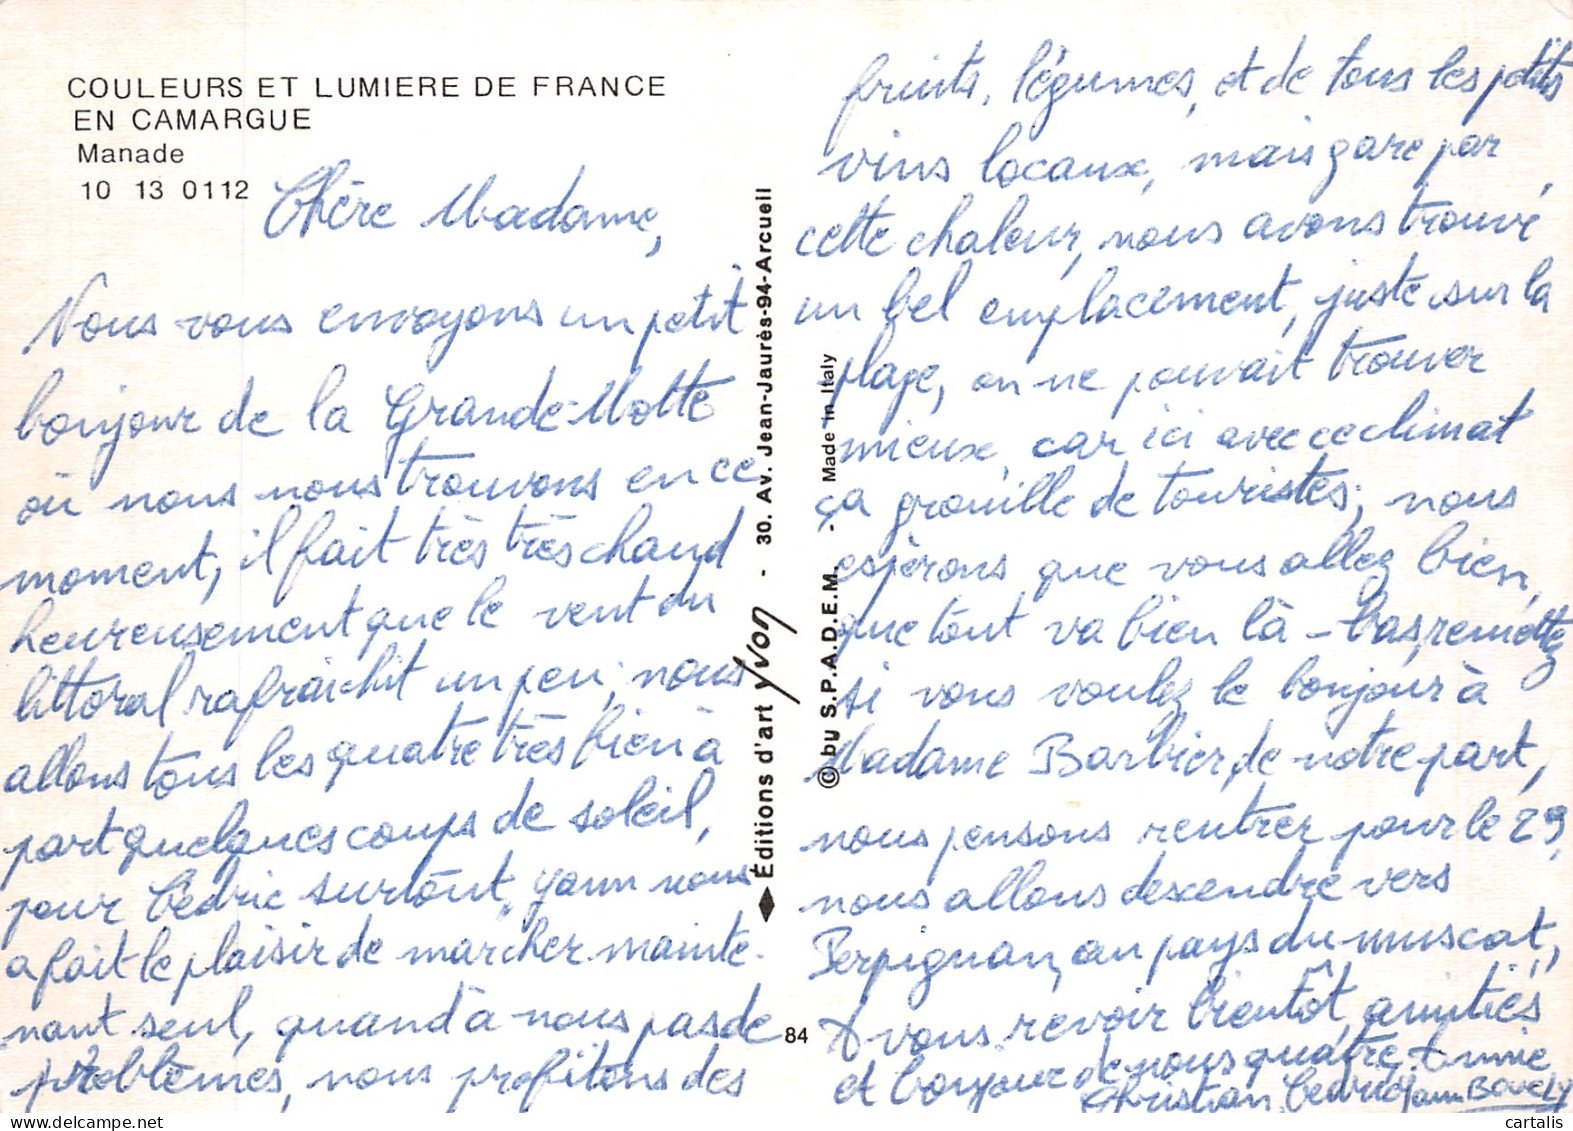 COULEURS ET LUMIERE DE FRANCE
EN CAMARGUE
Manade
10 13 0112
Chère Madame,
Nous vous envoyons un petit
bonjour de la Grande-Motte
où nous nous trouvons en ce
moment, il fait très très chaud
heureusement que le vent du
littoral rafraichit un peu, nous
allons tous les quatre très bien à
part quelques coups de soleil,
pour Cédric surtout, Yann nous
a fait le plaisir de marcher mainte-
nant seul, quand à nous pas de
problèmes, nous profitons des
Éditions d'art Yvon - 30. Av. Jean-Jaurès-94-Arcueil
© by S.P.A.D.E.M. - Made in Italy
84
fruits, légumes, et de tous les petits
vins locaux, mais gare par
cette chaleur, nous avons trouvé
un bel emplacement, juste sur la
plage, on ne pouvait trouver
mieux, car ici avec ce climat
ça grouille de touristes; nous
espérons que vous allez bien,
que tout va bien là-bas, remettez
si vous voulez le bonjour à
Madame Barbier, de notre part,
nous pensons rentrer pour le 29,
nous allons descendre vers
Perpignan, au pays du muscat,
A vous revoir bientôt, amitiés
et bonjour de nous quatre.
Christian, Cédric, Yann
cartalis